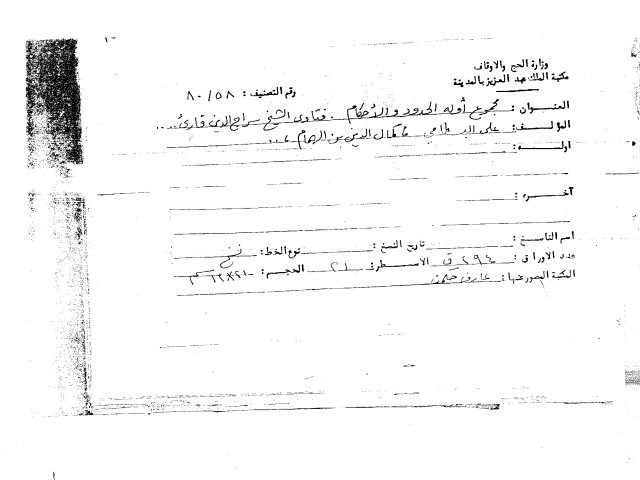 وزارة الحج والاوقاف
مكتبة الملك عبد العزيز بالمدينة
رقم التصنيف : ٨٠/٥٨
العنـــوان : مجموع أوله الحدود والأحكام . فتاوى الشيخ سراج الدين قارئ ....
المؤلــف : على البسطامي كمال الدين بن الهمام ...
اولــه :
آخـره :
اسم الناسخ : تاريخ النسخ : نوع الخط : نسخ
عدد الاوراق : ٢٩٤ ق الاســطر : ٢١ الحجــم : ٢١×١٢ سم
المكتبة المصور عنها : عارف حكمت